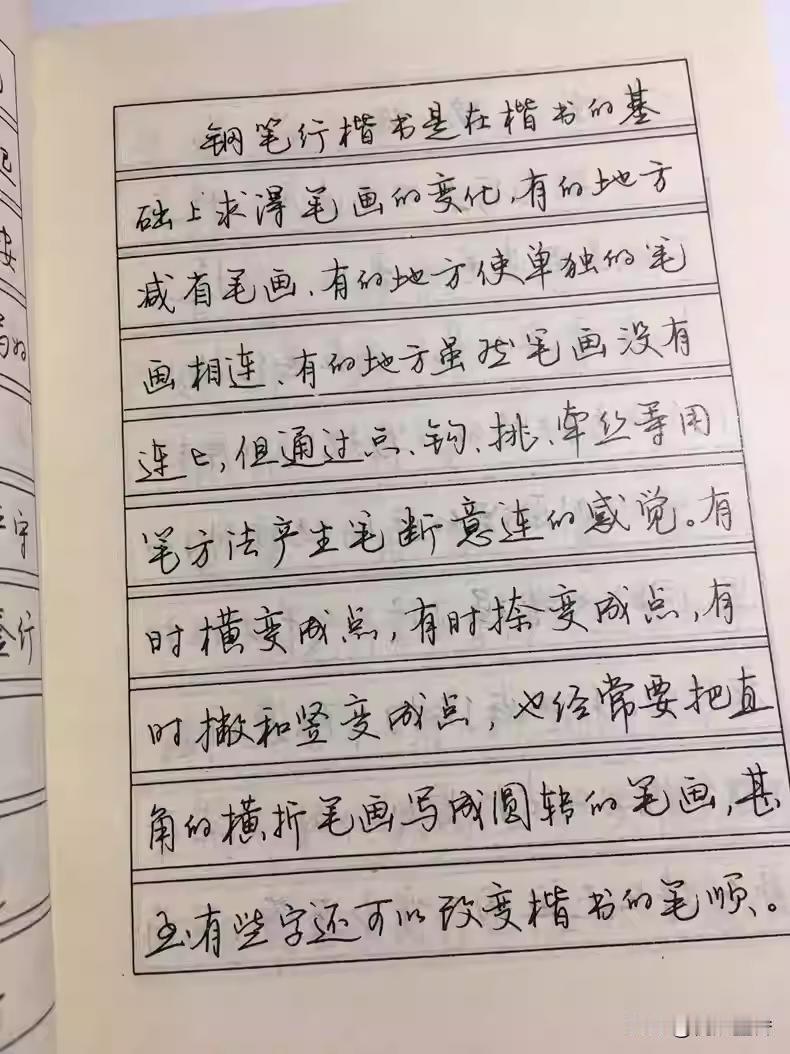 钢笔行楷书是在楷书的基
础上求得笔画的变化,有的地方
减省笔画、有的地方使单独的笔
画相连、有的地方虽然笔画没有
连上,但通过点、钩、挑、牵丝等用
笔方法产生笔断意连的感觉。有
时横变成点,有时捺变成点,有
时撇和竖变成点,也经常要把直
角的横折笔画写成圆转的笔画,甚
至有些字还可以改变楷书的笔顺。